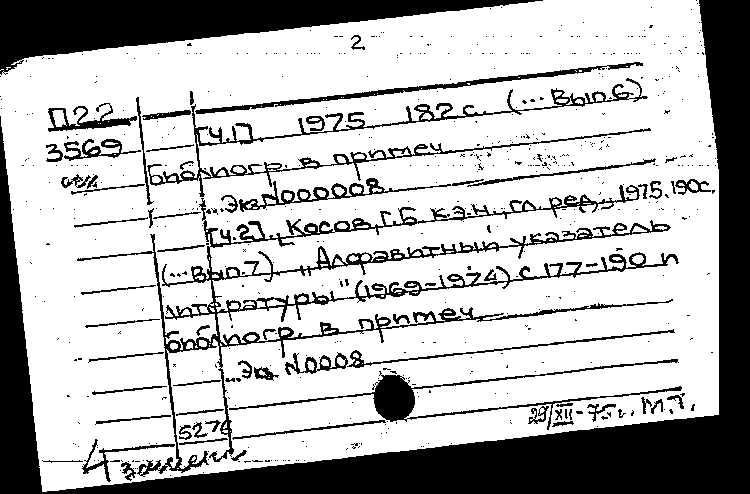 2
П22
3569
[ч.1]. 1975 182с. (...Вып.6)
библиогр. в примеч.
...Экз.N000008.
[ч.2]. [Косов, Г.Б. к.э.н., гл. ред., 1975. 190с.
(...Вып.7) „Алфавитный указатель
литературы" (1969-1974) с 177-190 и
библиогр. в примеч.
...Экз. N0008
5276
29/XII-75г. М.Т.